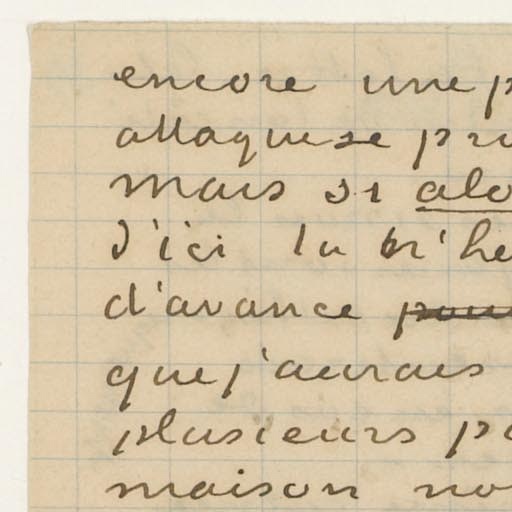 encore une p
attaque se pr
mais si alo
d'ici la
d'avance pour
que j'aurais
plusieurs po
maison no